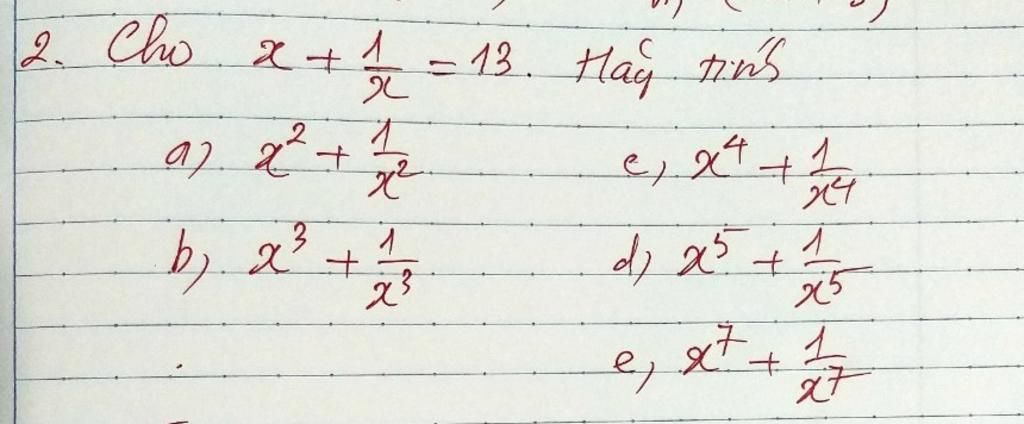 2. Cho x + 1/x = 13. Hãy tính
a) x² + 1/x² c, x⁴ + 1/x⁴
b, x³ + 1/x³ d, x⁵ + 1/x⁵
e, x⁷ + 1/x⁷